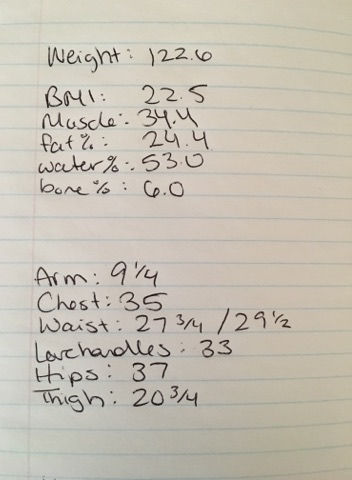 Weight: 122.6
BMI: 22.5
Muscle: 34.4
fat%: 24.4
water%: 53.0
bone%: 6.0
Arm: 9 1/4
Chest: 35
Waist: 27 3/4 / 29 1/2
Lovehandles: 33
Hips: 37
Thigh: 20 3/4